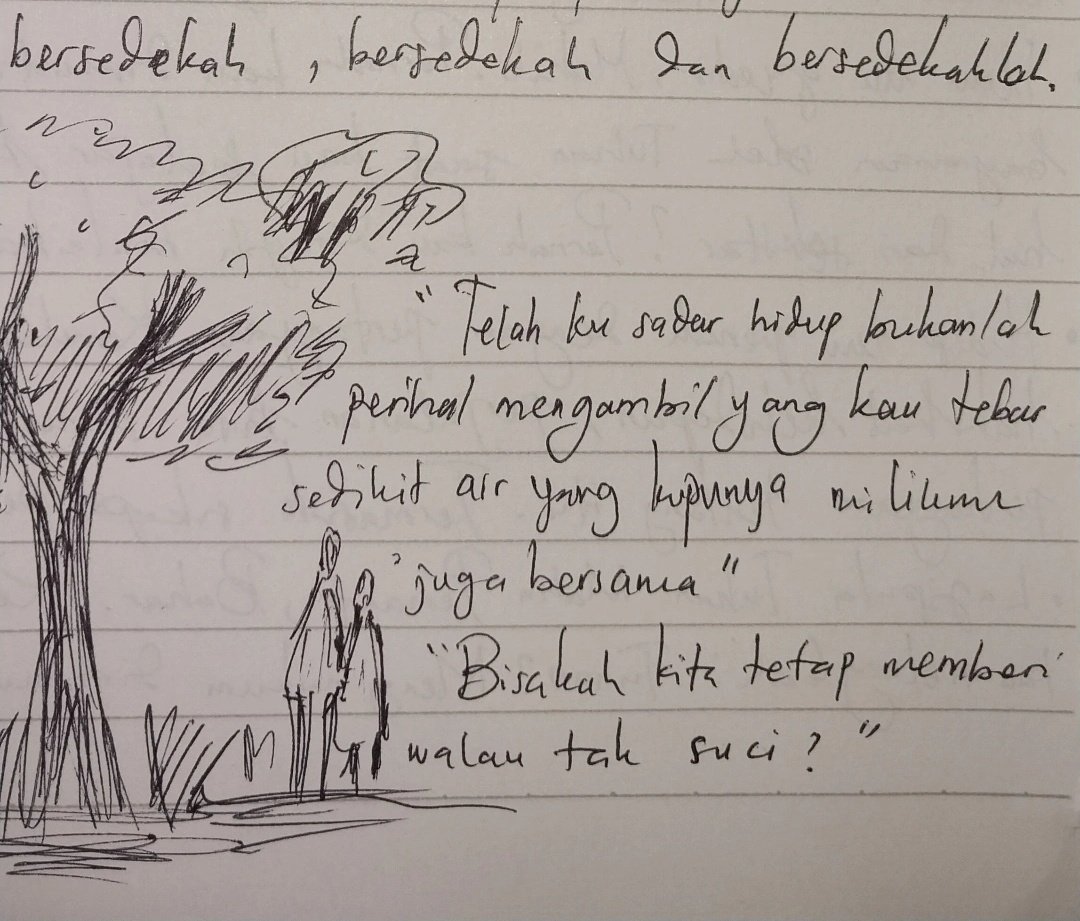 bersedekah, bersedekah dan bersedekahlah.
"Telah ku sadar hidup bukanlah
perihal mengambil yang kau tebar
sedikit air yang kupunya milikmu
juga bersama"
"Bisakah kita tetap memberi
walau tak suci?"